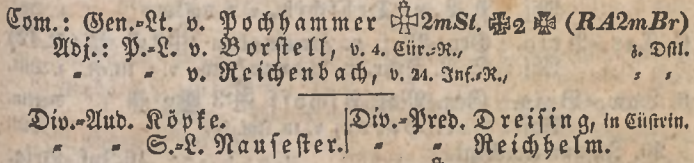 Com.: Gen.-Lt. v. Pochhammer 2mSt. 2 (RA2mBr)
Adj.: P.-L. v. Borstell, v. 4. Cür.-R., z. Dstl.
" " v. Reichenbach, v. 24. Inf.-R., " "
Div.-Aud. Köpke.
" " S.-L. Nausester.
Div.-Pred. Dreising, in Cüstrin.
" " Reichhelm.